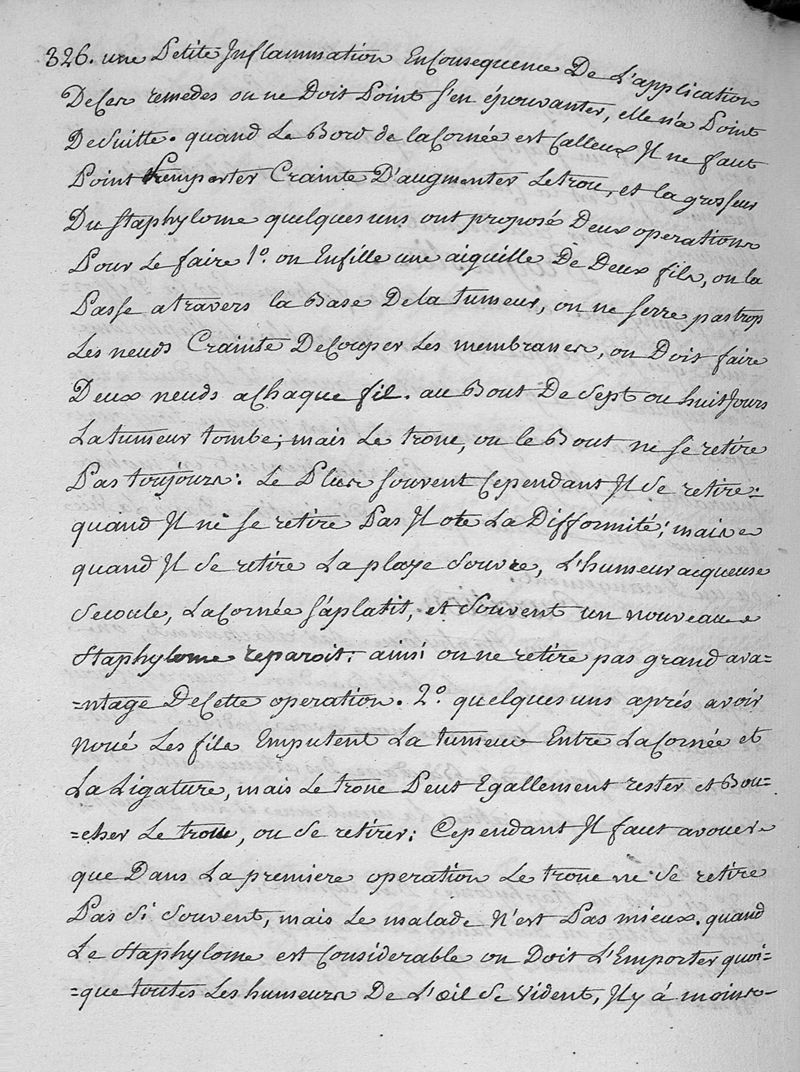 326. une Petite Inflammation En Consequence De L'application
De Ces remedes on ne Doit Point s'en épouvanter, elle n'a Point
De suitte. quand Le Bord de la Cornée est Calleux Il ne faut
Point l'emporter Crainte D'augmenter Le trou, et la grosseur
Du staphylome quelques uns ont proposé Deux operations
Pour Le faire 1º. on Enfille une aiguille De Deux fils, on la
Passe a travers la Base De la tumeur, on ne serre pas trop
Les neuds Crainte De Couper Les membranes, on Doit faire
Deux neuds a Chaque fil. au Bout De Sept ou huit Jours
La tumeur tombe, mais Le tronc, ou le Bout ne se retire
Pas toujours: Le Plus souvent Cependant Il se retire:
quand Il ne se retire Pas Il ote La Difformité; mais
quand Il se retire La playe S'ouvre, L'humeur acqueuse
Secoule, La Cornée s'aplatit, et Souvent un nouveau
Staphylome reparoit: ainsi on ne retire pas grand ava=
=ntage De Cette operation. 2º. quelques uns aprés avoir
noué Les fils Emputent La tumeur Entre La Cornée et
La Ligature, mais Le tronc Peut Egallement rester et Bou=
=cher Le trou, ou se retirer: Cependant Il faut avouer
que Dans La premiere operation Le tronc ne se retire
Pas Si Souvent, mais Le malade N'est Pas mieux. quand
Le Staphylome est Considerable on Doit L'Emporter quoi=
=que toutes Les humeurs De L'œil se vident, Il y á moins